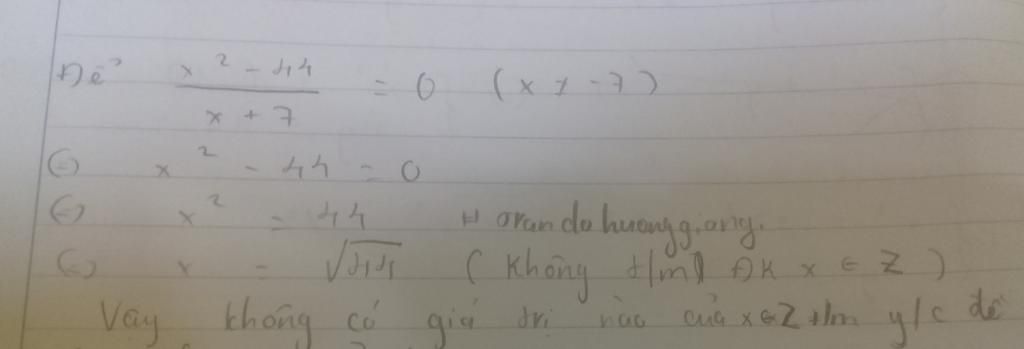 Để x² - 44 / x + 7 = 0 (x ≠ -7)
(=) x² - 44 = 0
(=) x² = 44 # orandohuonggiang.
(=) x = √44 (không t/m) ĐK x ∈ Z)
Vậy không có giá trị nào của x ∈ Z t/m y/c đề